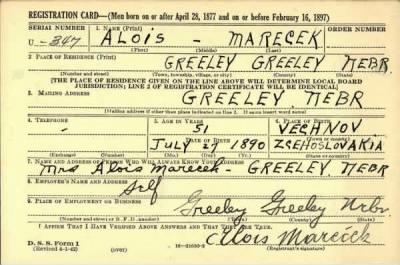 REGISTRATION CARD—(Men born on or after April 28, 1877 and on or before February 16, 1897)
SERIAL NUMBER 1. NAME (Print) ORDER NUMBER
U-347 ALOIS - MARECEK
(First) (Middle) (Last)
2. PLACE OF RESIDENCE (Print)
GREELEY GREELEY NEBR.
(Number and street) (Town, township, village, or city) (County) (State)
[THE PLACE OF RESIDENCE GIVEN ON THE LINE ABOVE WILL DETERMINE LOCAL BOARD
JURISDICTION; LINE 2 OF REGISTRATION CERTIFICATE WILL BE IDENTICAL]
3. MAILING ADDRESS
GREELEY, NEBR
[Mailing address if other than place indicated on line 2. If same insert word same]
4. TELEPHONE 5. AGE IN YEARS 6. PLACE OF BIRTH
- 51 VECHNOV
DATE OF BIRTH (Town or county)
JULY 27 1890 ZCEHOSLOVAKIA
(Exchange) (Number) (Mo.) (Day) (Yr.) (State or country)
7. NAME AND ADDRESS OF PERSON WHO WILL ALWAYS KNOW YOUR ADDRESS
Mrs Alois Marecek - GREELEY NEBR
8. EMPLOYER'S NAME AND ADDRESS
Self
9. PLACE OF EMPLOYMENT OR BUSINESS
Greeley Greeley Nebr.
(Number and street or R. F. D. number) (Town) (County) (State)
I AFFIRM THAT I HAVE VERIFIED ABOVE ANSWERS AND THAT THEY ARE TRUE.
Alois Marecek
D. S. S. Form 1
(Revised 4-1-42) (over) 16-21630-2 (Registrant's signature)